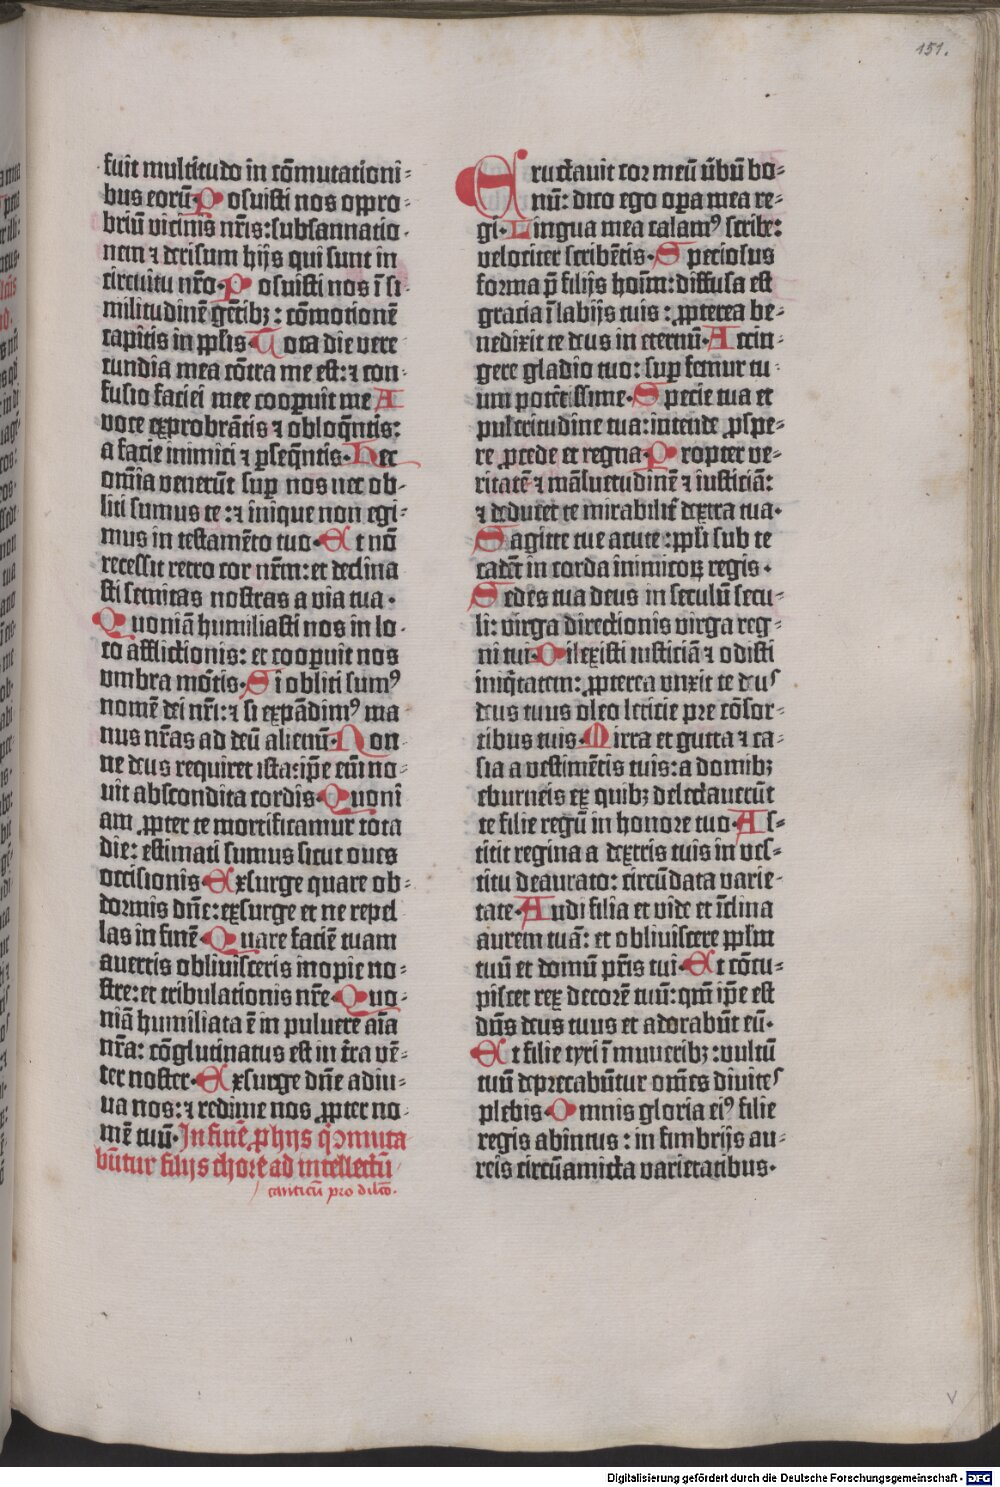 151.
fuit multitudo in cōmutationi-
bus eorū. Posuisti nos oppro-
briū vicinis nr̄is: subsannatio-
nem ⁊ derisum hijs qui sunt in
circuitu nr̄o. Posuisti nos ī si-
militudinē gētibꝫ: cōmotionē
capitis in ppl̄is. Tota die vere-
cundia mea cōtra me est: ⁊ con-
fusio faciei mee cooꝑuit me A
voce exprobrātis ⁊ obloq̄ntis:
a facie inimici ⁊ ꝑseq̄ntis. Hec
om̄ia venerūt suꝑ nos nec ob-
liti sumus te: ⁊ inique non egi-
mus in testamēto tuo. Et nō
recessit retro cor nr̄m: et declina
sti semitas nostras a via tua.
Quoniā humiliasti nos in lo-
co afflictionis: et cooꝑuit nos
vmbra mortis. Si obliti sumꝰ
nomē dei nr̄i: ⁊ si expādimꝰ ma
nus nr̄as ad deū alienū. Non-
ne deus requiret ista: ip̄e em̄ no-
uit abscondita cordis. Quoni
am ꝓpter te mortificamur tota
die: estimati sumus sicut oues
occisionis Exsurge quare ob-
dormis dn̄e: exsurge et ne repel
las in finē Quare faciē tuam
auertis obliuisceris inopie no-
stre: et tribulationis nr̄e Quo-
niā humiliata ē in puluere aīa
nr̄a: cōglutinatus est in tr̄a vē-
ter noster. Exsurge dn̄e adiu-
ua nos: ⁊ redime nos ꝓpter no-
mē tuū. In finē ꝓ hijs q̄ ꝯmuta
būtur filijs chore ad intellectū
canticū pro dilc̄o.
Eructauit cor meū v̄bū bo-
nū: dico ego oꝑa mea re-
gi. Lingua mea calamꝰ scribe:
velociter scribētis. Speciosus
forma p̄ filijs hoīm: diffusa est
gracia ī labijs tuis: ꝓpterea be-
nedixit te deus in eternū. Accin-
gere gladio tuo: suꝑ femur tu-
um potētissime. Specie tua et
pulcritudine tua: intende ꝓspe-
re ꝓcede et regna. Propter ve-
ritatē ⁊ māsuetudinē ⁊ iusticiā:
⁊ deducet te mirabilit̄ dextra tua.
Sagitte tue acute: ppl̄i sub te
cadēt in corda inimicoꝝ regis.
Sedes tua deus in seculū secu-
li: virga directionis virga reg-
ni tui. Dilexisti iusticiā ⁊ odisti
iniq̄tatem: ꝓpterea vnxit te deus
deus tuus oleo leticie pre cōsor-
tibus tuis. Mirra et gutta ⁊ ca-
sia a vestimētis tuis: a domibꝫ
eburneis ex quibꝫ delectauerūt
te filie regū in honore tuo. As-
titit regina a dextris tuis in ves-
titu deaurato: circūdata varie-
tate. Audi filia et vide et īclina
aurem tuā: et obliuiscere ppl̄m
tuū et domū pr̄is tui. Et cōcu-
piscet rex decorē tuū: qm̄ ip̄e est
dn̄s deus tuus et adorabūt eū.
Et filie tyri ī muneribꝫ: vultū
tuū deprecabūtur om̄es diuites
plebis. Omnis gloria eiꝰ filie
regis abintus: in fimbrijs au-
reis circūamicta varietatibus.
V
Digitalisierung gefördert durch die Deutsche Forschungsgemeinschaft - DFG